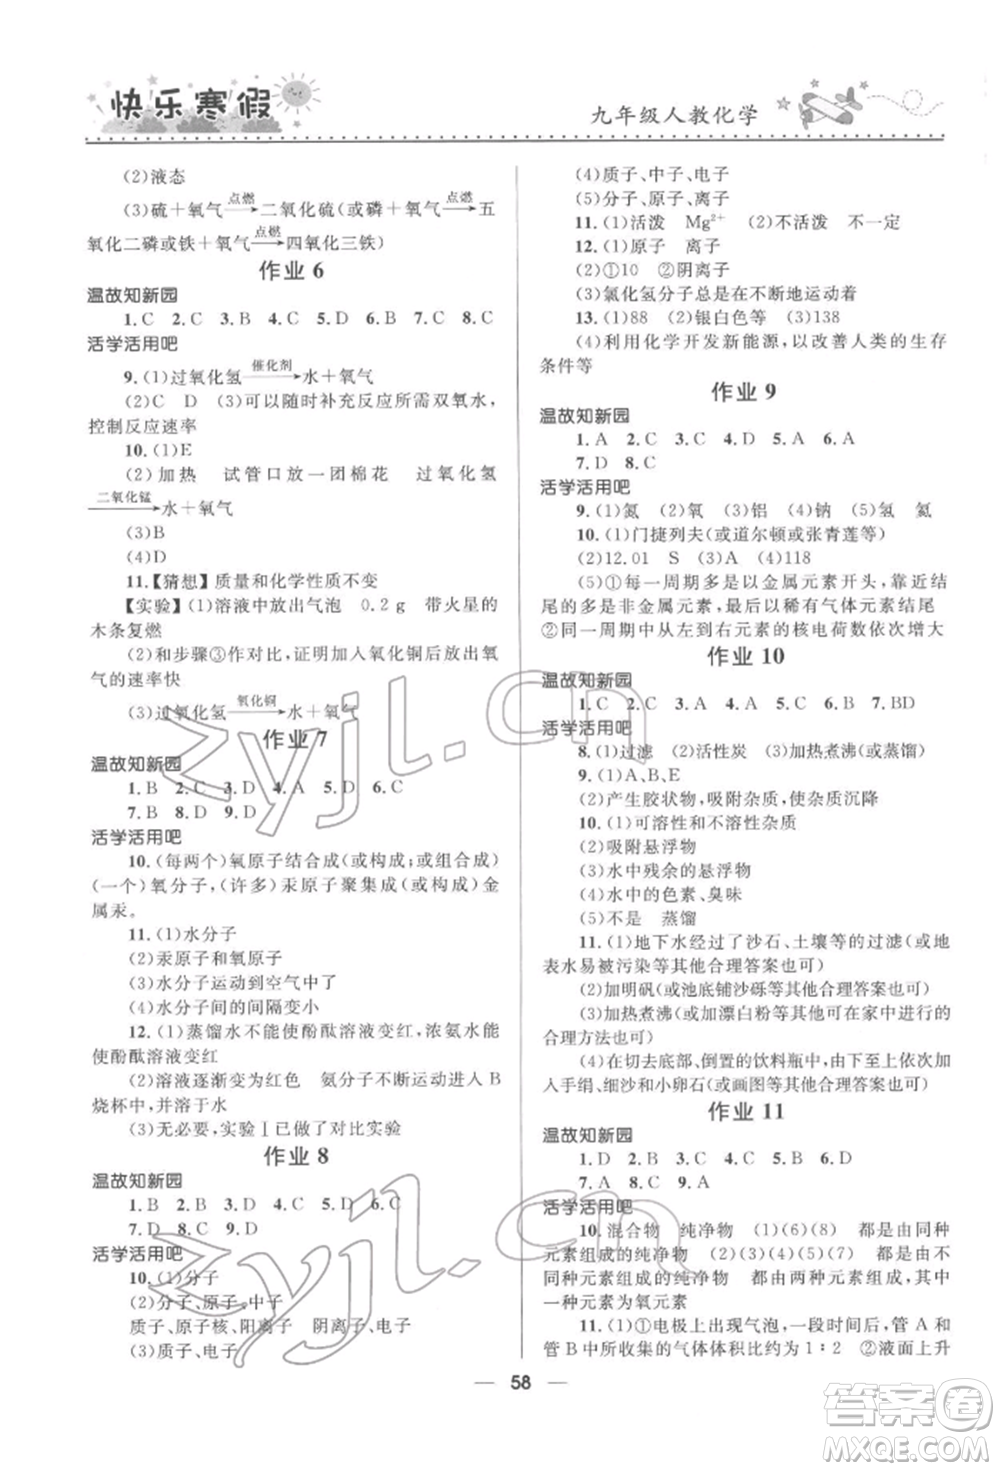 快乐寒假
九年级人教化学
(2)液态
(3)硫＋氧气 点燃→ 二氧化硫(或磷＋氧气 点燃→ 五
氧化二磷或铁＋氧气 点燃→ 四氧化三铁)
作业 6
温故知新园
1. C 2. C 3. B 4. C 5. D 6. C 7. C 8. C
活学活用吧
9. (1)过氧化氢 催化剂→ 水＋氧气
(2)C D (3)可以随时补充反应所需双氧水，
控制反应速率
10. (1)E
(2)加热 试管口放一团棉花 过氧化氢
二氧化锰→ 水＋氧气
(3)B
(4)D
11.【猜想】质量和化学性质不变
【实验】(1)溶液中放出气泡 0.2 g 带火星的
木条复燃
(2)和步骤③作对比，证明加入氧化铜后放出氧
气的速率快
(3)过氧化氢 氧化铜→ 水＋氧气
作业 7
温故知新园
1. B 2. C 3. D 4. A 5. D 6. C
7. B 8. D 9. D
活学活用吧
10. (每两个)氧原子结合成(或构成；或组合成)
(一个)氧分子，(许多)汞原子聚集成(或构成)金
属汞。
11. (1)水分子
(2)汞原子和氧原子
(3)水分子运动到空气中了
(4)水分子间的间隔变小
12. (1)蒸馏水不能使酚酞溶液变红，浓氨水能
使酚酞溶液变红
(2)溶液逐渐变为红色 氨分子不断运动进入 B
烧杯中，并溶于水
(3)无必要，实验Ⅰ已做了对比实验
作业 8
温故知新园
1. B 2. B 3. D 4. C 5. D 6. C
7. D 8. C 9. D
活学活用吧
10. (1)分子
(2)分子、原子、中子
质子、原子核、阳离子 阴离子、电子
(3)质子、电子
(4)质子、中子、电子
(5)分子、原子、离子
11. (1)活泼 Mg²⁺ (2)不活泼 不一定
12. (1)原子 离子
(2)①10 ②阴离子
(3)氯化氢分子总是在不断地运动着
13. (1)88 (2)银白色等 (3)138
(4)利用化学开发新能源，以改善人类的生存
条件等
作业 9
温故知新园
1. A 2. C 3. C 4. D 5. A 6. C
7. D 8. C
活学活用吧
9. (1)氮 (2)氧 (3)铝 (4)钠 (5)氢 氦
10. (1)门捷列夫(或道尔顿或张青莲等)
(2)12.01 S (3)A (4)118
(5)①每一周期多是以金属元素开头，靠近尾
部的多是非金属元素，最后以稀有气体元素结尾
②同一周期中从左到右元素的核电荷数依次增大
作业 10
温故知新园
1. C 2. C 3. A 4. A 5. B 6. B 7. BD
活学活用吧
8. (1)过滤 (2)活性炭 (3)加热煮沸(或蒸馏)
9. (1)A、B、E
(2)产生胶状物，吸附杂质，使杂质沉降
10. (1)可溶性和不溶性杂质
(2)吸附悬浮物
(3)水中残余的悬浮物
(4)水中的色素、臭味
(5)不是 蒸馏
11. (1)地下水经过了沙石、土壤等的过滤(或地
表水易被污染等其他合理答案也可)
(2)加明矾(或池底铺沙砾等其他合理答案也可)
(3)加热煮沸(或加漂白粉等其他可在家中进行的
合理方法也可)
(4)在切去底部、倒置的饮料瓶中，由下至上依次加
入手绢、细沙和小卵石(或画图等其他合理答案也可)
作业 11
温故知新园
1. D 2. B 3. C 4. D 5. B 6. D
7. A 8. C 9. D
活学活用吧
10. 混合物 纯净物 (1)(6)(8) 都是由同种
元素组成的纯净物 (2)(3)(4)(5)(7) 都是由不
同种元素组成的纯净物 都由两种元素组成，其中
一种元素为氧元素
11. (1)①电极上出现气泡，一段时间后，管 A 和
管 B 中所收集的气体体积比约为 1∶2 ②液面上升
58
zyjl.cn
zyjl.cn
答案圈
MXQE.COM